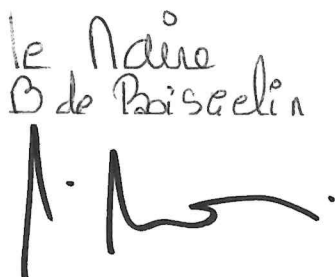 le Maire
B de Boisgelin